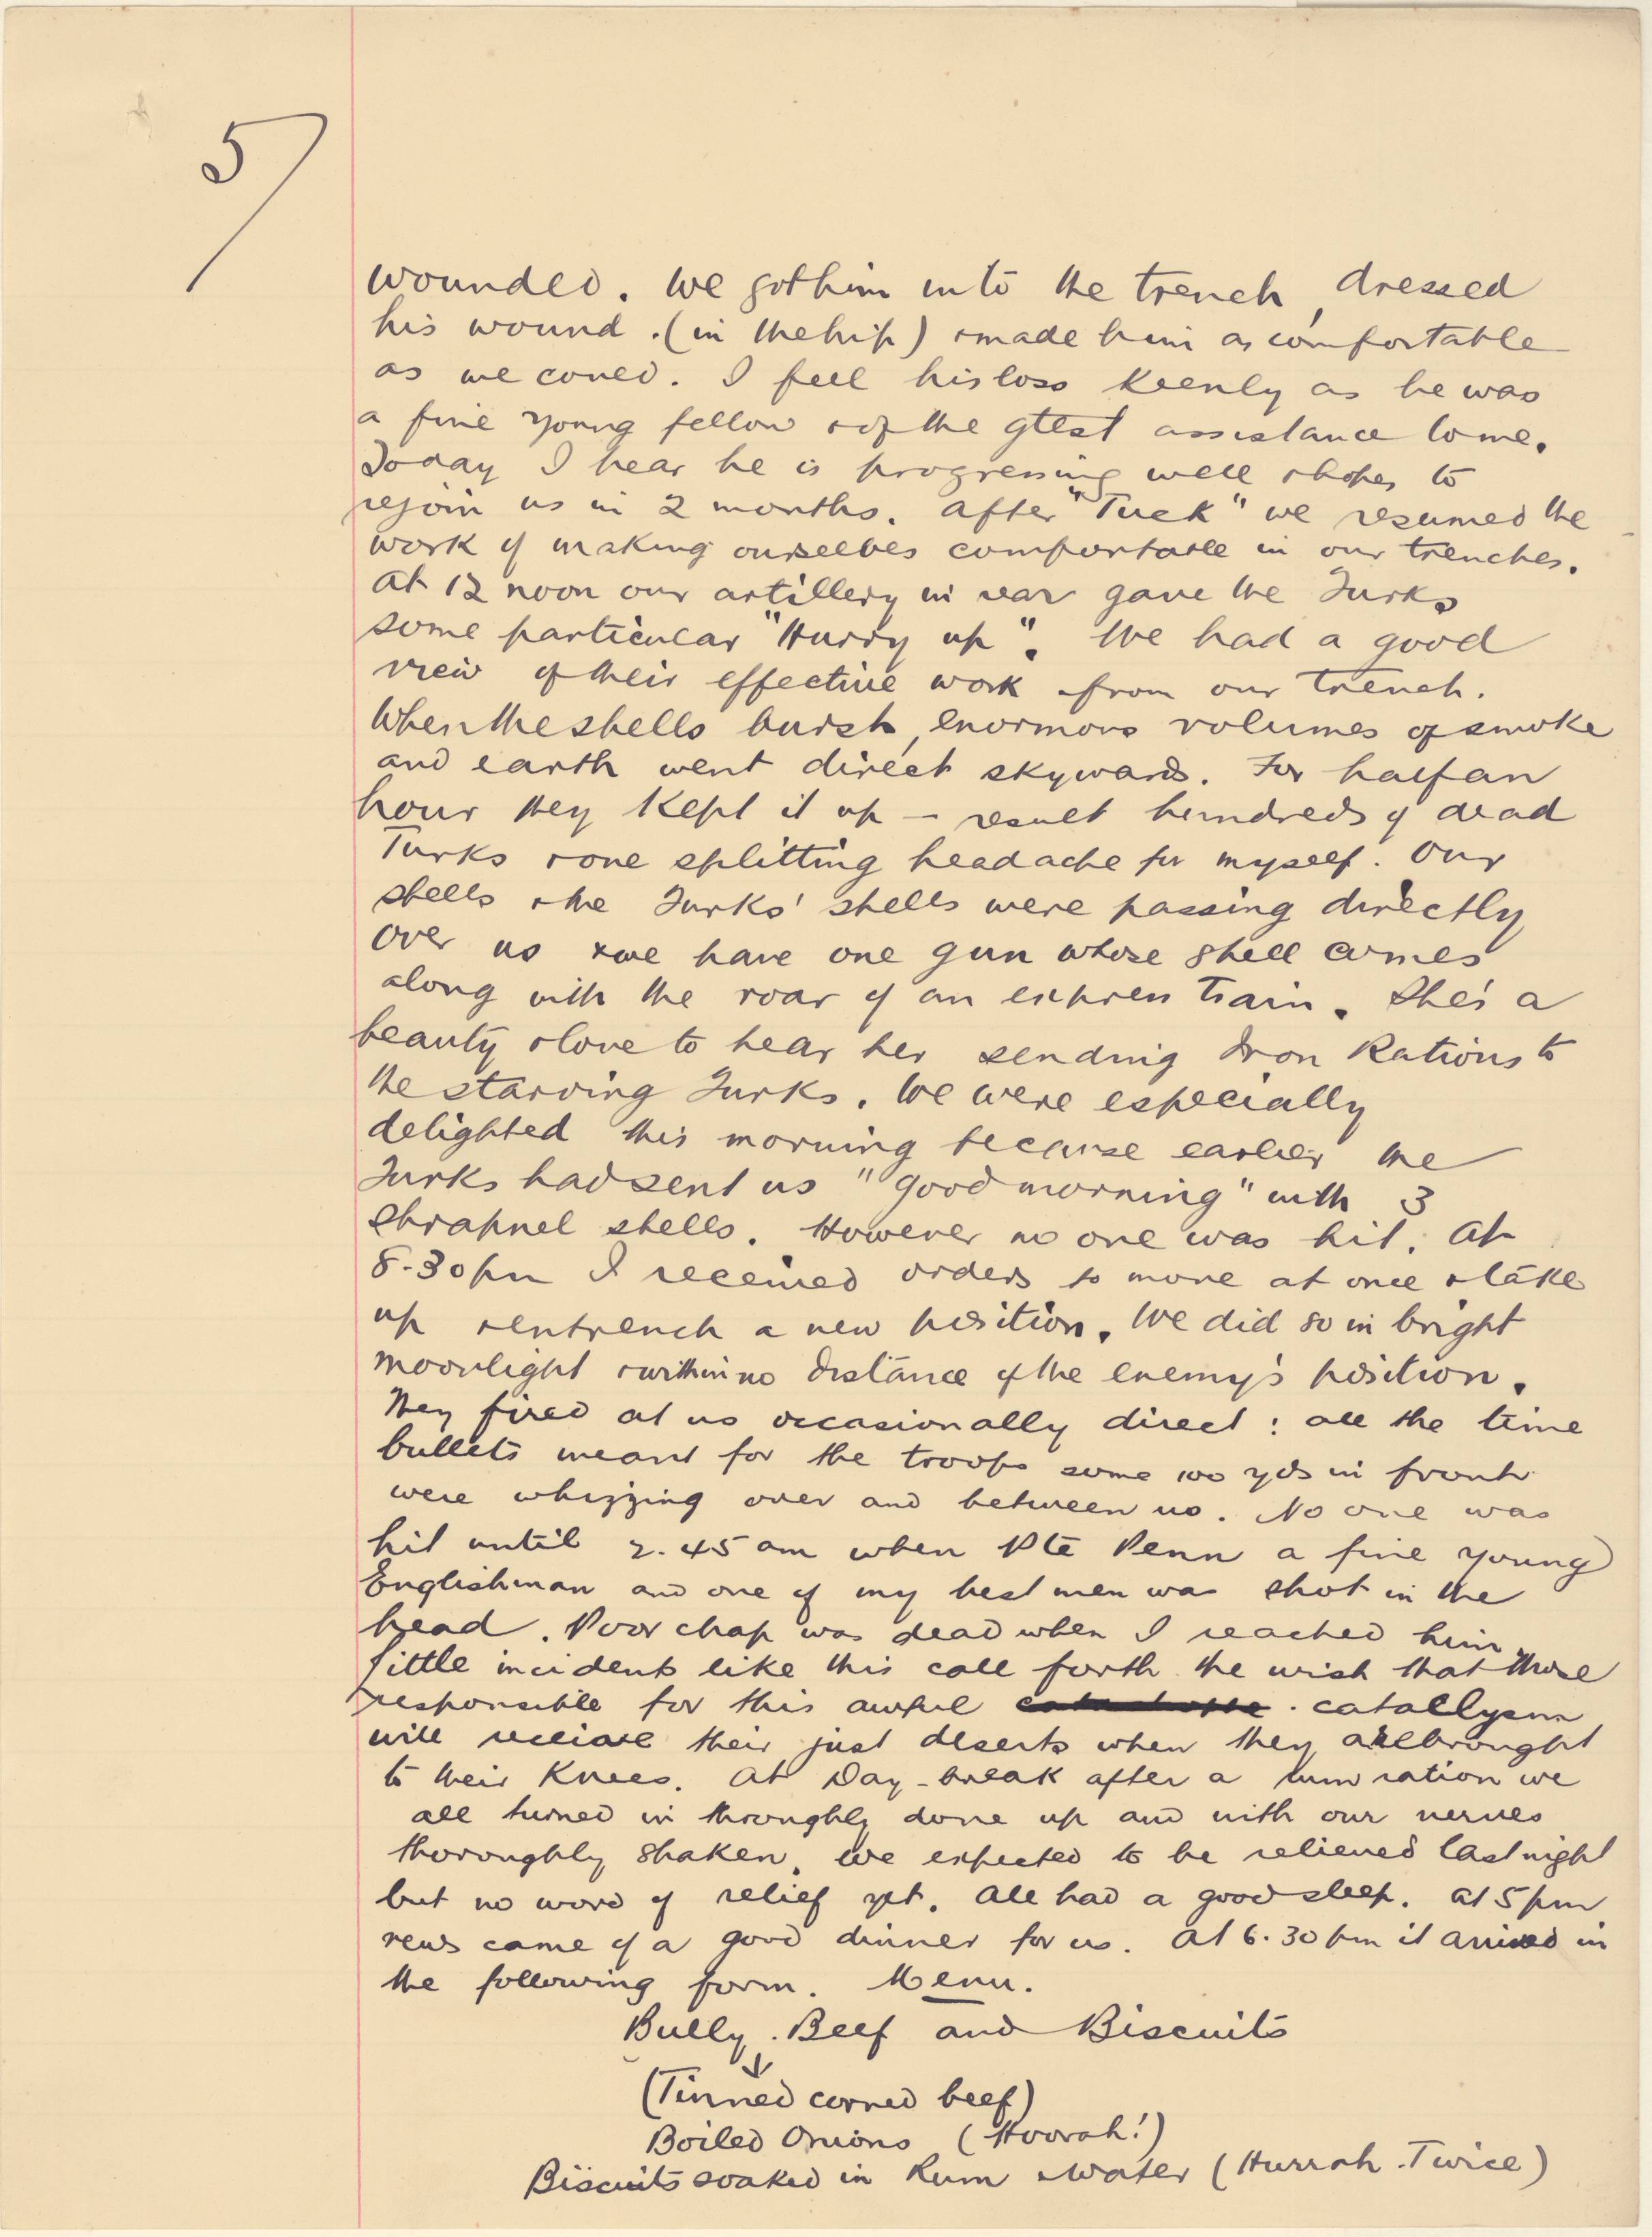 5/
wounded. We got him into the trench, dressed
his wound. (in the hip) & made him as comfortable
as we could. I feel his loss keenly as he was
a fine young fellow & of the gtest assistance to me.
Today I hear he is progressing well & hopes to
rejoin us in 2 months. After "Tuck" we resumed the
work of making ourselves comfortable in our trenches.
At 12 noon our artillery in rear gave the Turks
some particular "Hurry up". We had a good
view of their effective work from our trench.
When the shells burst, enormous volumes of smoke
and earth went direct skywards. For half an
hour they kept it up – result hundreds of dead
Turks & one splitting headache for myself. Our
shells & the Turks' shells were passing directly
over us & we have one gun whose shell comes
along with the roar of an express train. She's a
beauty & love to hear her sending Iron Rations to
the starving Turks. We were especially
delighted this morning because earlier the
Turks had sent us "good morning" with 3
Shrapnel shells. However no one was hit. At
8.30 pm I received orders to move at once & take
up & entrench a new position. We did so in bright
moonlight & within no distance of the enemy's position.
They fired at us occasionally direct: all the time
bullets meant for the troops some 100 yds in front
were whizzing over and between us. No one was
hit until 2.45 am when Pte Penn a fine young
Englishman and one of my best men was shot in the
head. Poor chap was dead when I reached him.
Little incidents like this call forth the wish that those
responsible for this awful catacllysm
will receive their just deserts when they are brought
to their knees. At Day-break after a rum ration we
all turned in throughly done up and with our nerves
thoroughly shaken. We expected to be relieved last night
but no word of relief yet. All had a good sleep. At 5 pm
news came of a good dinner for us. At 6.30 pm it arrived in
the following form. Menu.
Bully Beef and Biscuits
(Tinned corned beef)
Boiled Onions (Hoorah!)
Biscuits soaked in Rum & Water (Hurrah Twice)